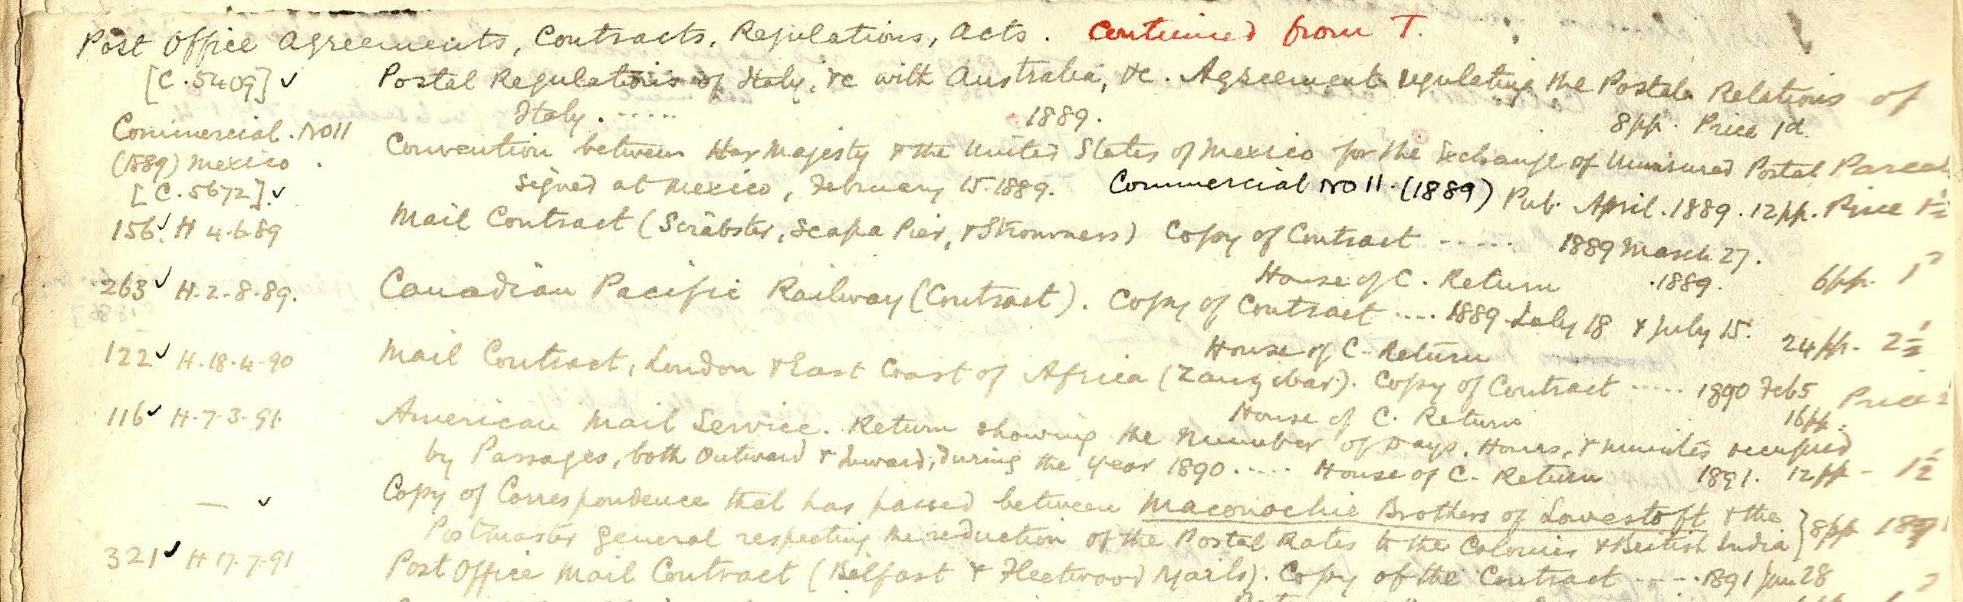 Post Office Agreements, Contracts, Regulations, Acts. Continued from T.
[C.5409] ✓ Postal Regulations of Italy, &c with Australia, &c. Agreement regulating the Postal Relations of
Italy. ...... 1889. 8pp. Price 1d.
Commercial. No 11 Convention between Her Majesty & the United States of Mexico for the Exchange of Uninsured Postal Parcels
(1889) Mexico. Signed at Mexico, February 15. 1889. Commercial No 11. (1889) Pub. April. 1889. 12pp. Price 1½
[C.5672]. ✓
156 ✓ H 4.6.89 Mail Contract (Scrabster, Scapa Pier, & Stromness) Copy of Contract ...... 1889 March 27.
House of C. Return .1889. 6pp. 1
263 ✓ H.2.8.89. Canadian Pacific Railway (Contract). Copy of Contract .... 1889 July 18 & July 15.
House of C. Return 24pp. 2½
122 ✓ H.18.4.90 Mail Contract, London & East Coast of Africa (Zanzibar). Copy of Contract ..... 1890 Feb 5
House of C. Return 16pp. Price
116 ✓ H.7.3.91 American Mail Service. Return showing the Number of Days, Hours, & minutes occupied
by Passages, both Outward & Inward, during the year 1890 ..... House of C. Return 1891. 12pp - 1½
— ✓ Copy of Correspondence that has passed between Maconochie Brothers of Lowestoft & the
Postmaster General respecting the reduction of the Postal Rates to the Colonies & British India } 8pp 1891
321 ✓ H 17.7.91 Post Office Mail Contract (Belfast & Fleetwood Mails). Copy of the Contract ----- 1891 Jan 28